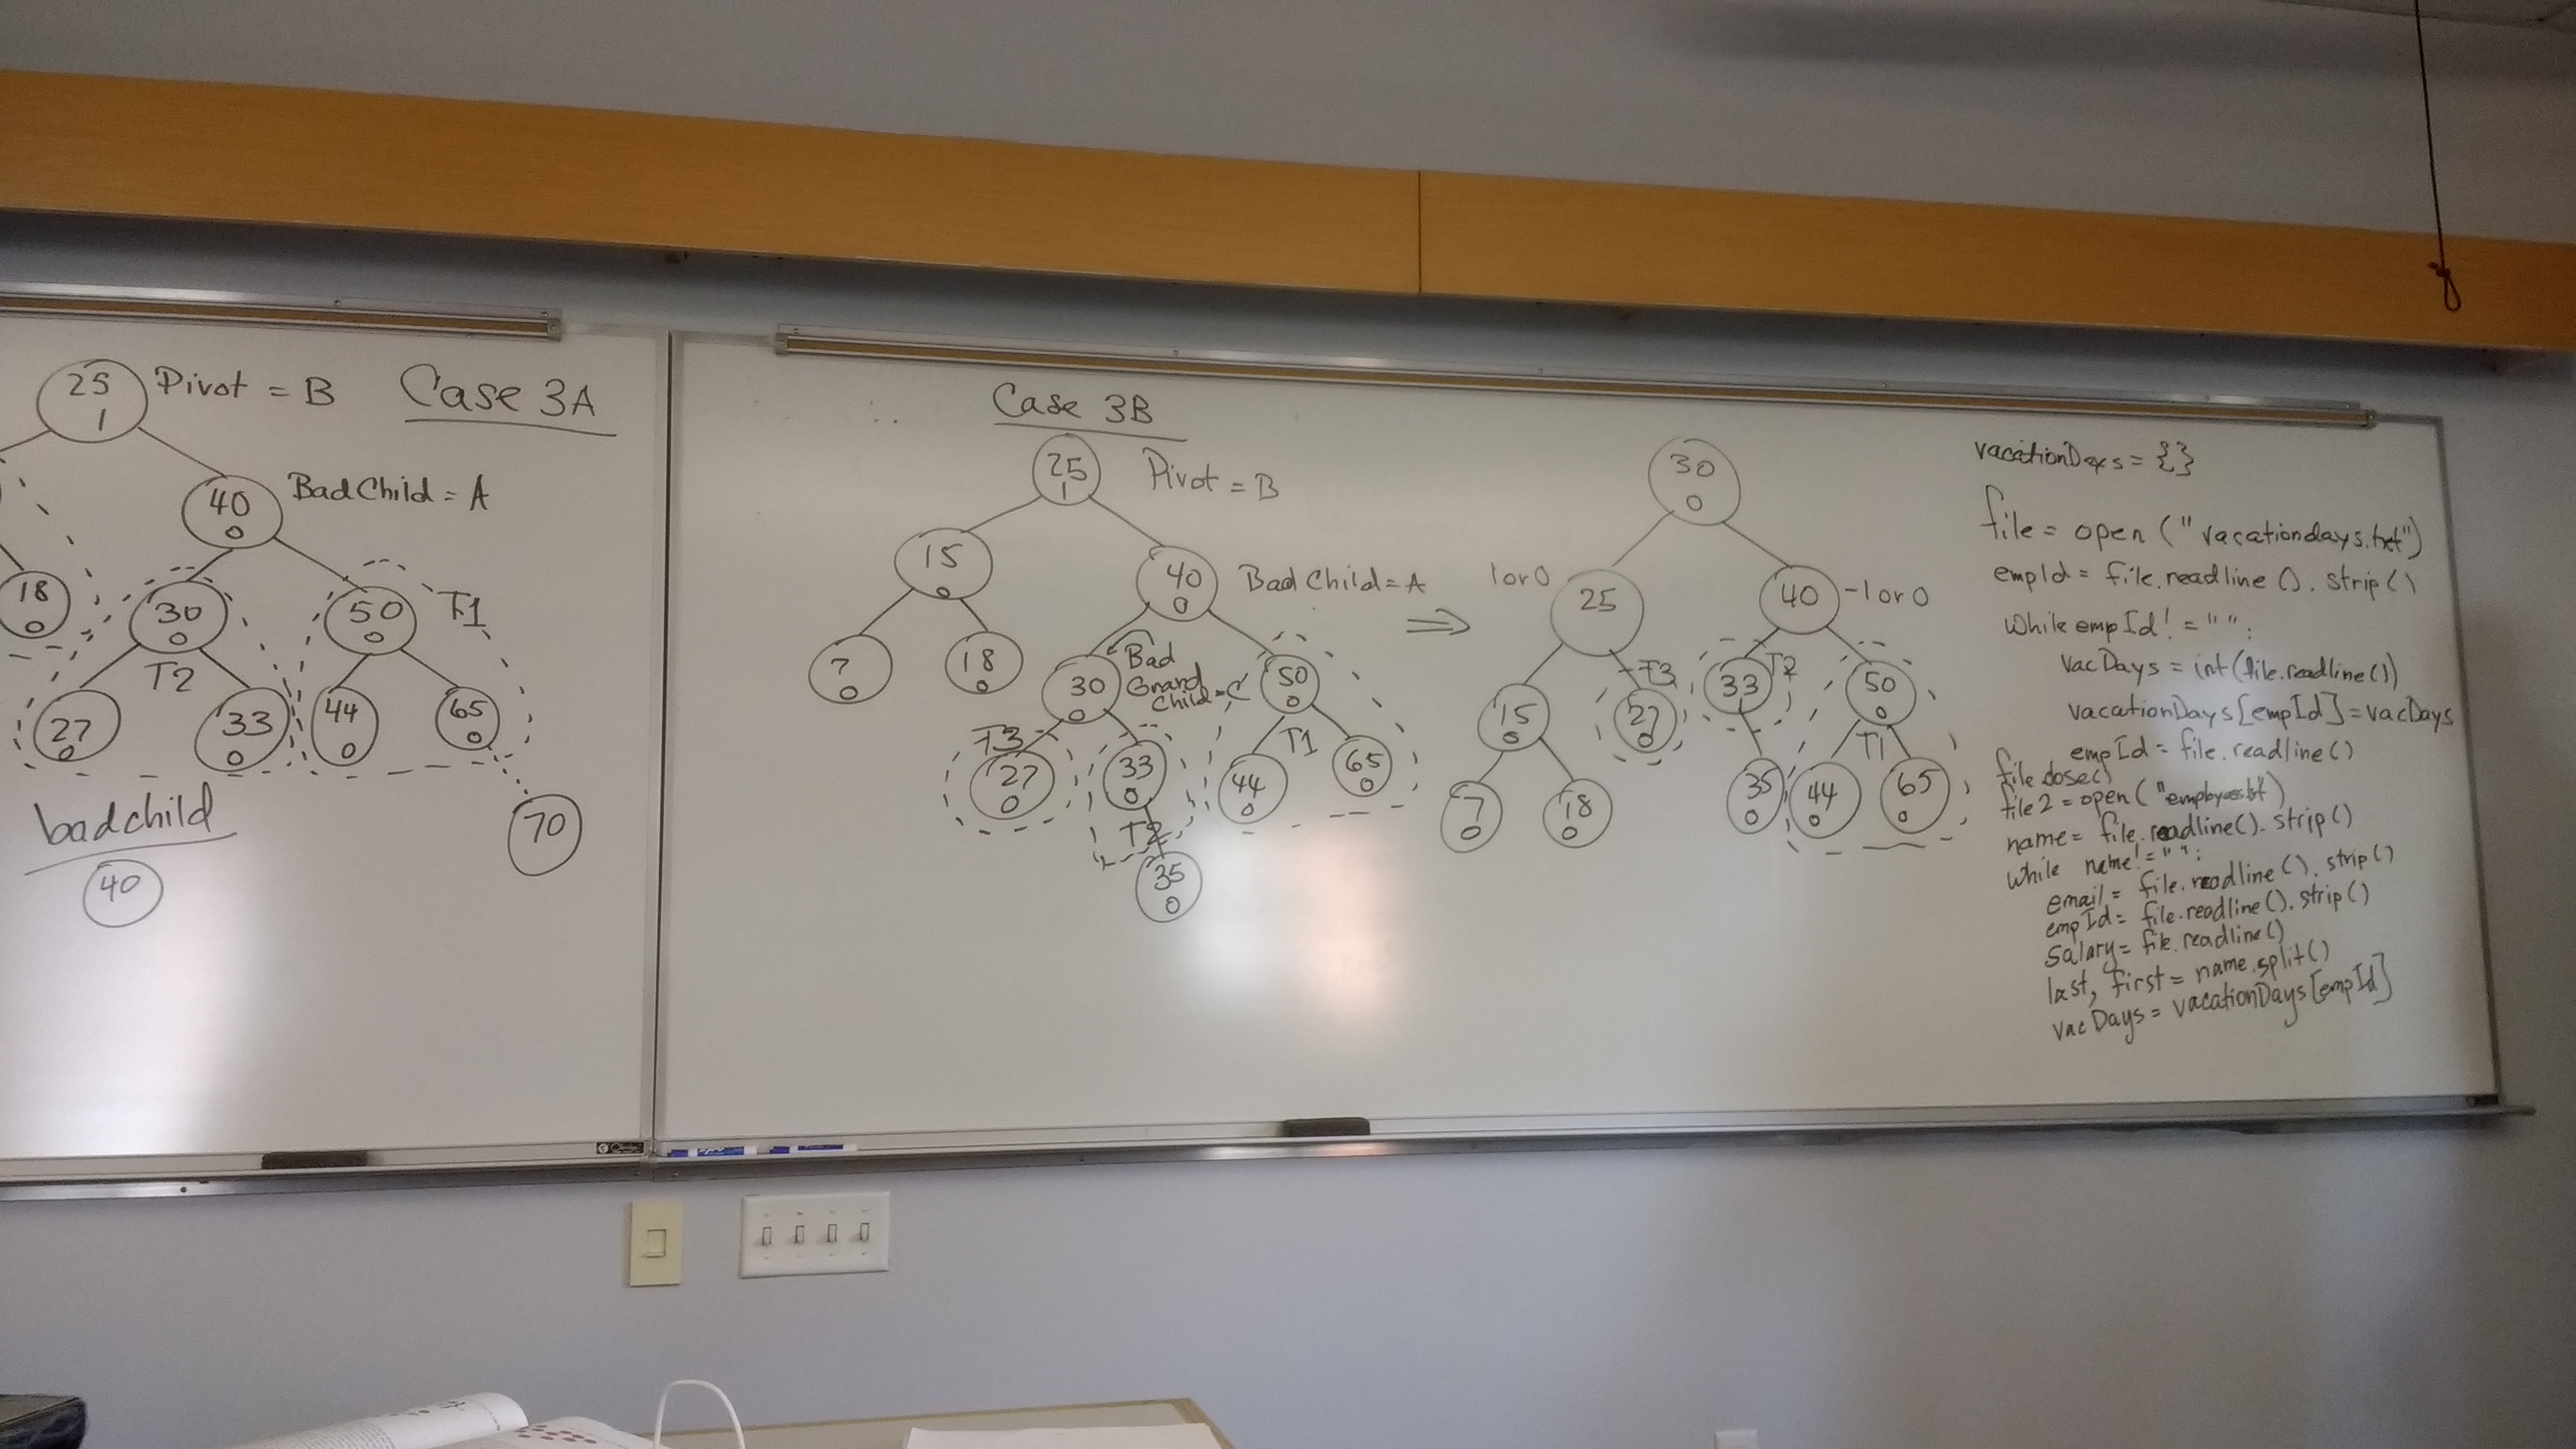 25
1
Pivot = B
Case 3A
40
0
BadChild = A
18
0
30
0
50
0
T1
T2
27
0
33
0
44
0
65
0
70
badchild
40
Case 3B
25
1
Pivot = B
15
0
40
0
Bad Child = A
7
0
18
0
30
0
Bad
Grand
Child = C
50
0
T3
27
0
33
0
T2
35
0
44
0
T1
65
0
⇒
30
0
1 or 0
25
40
-1 or 0
15
0
T3
27
0
33
T2
50
0
7
0
18
0
35
0
44
0
T1
65
0
vacationDays = {}
file = open ("vacationdays.txt")
empId = file.readline().strip()
while empId != "":
vacDays = int(file.readline())
vacationDays[empId] = vacDays
empId = file.readline()
file.close()
file2 = open("
name = file.readline().strip()
while name != "":
email = file.readline().strip()
empId = file.readline().strip()
salary = file.readline()
last, first = name.split()
vacDays = vacationDays[empId]